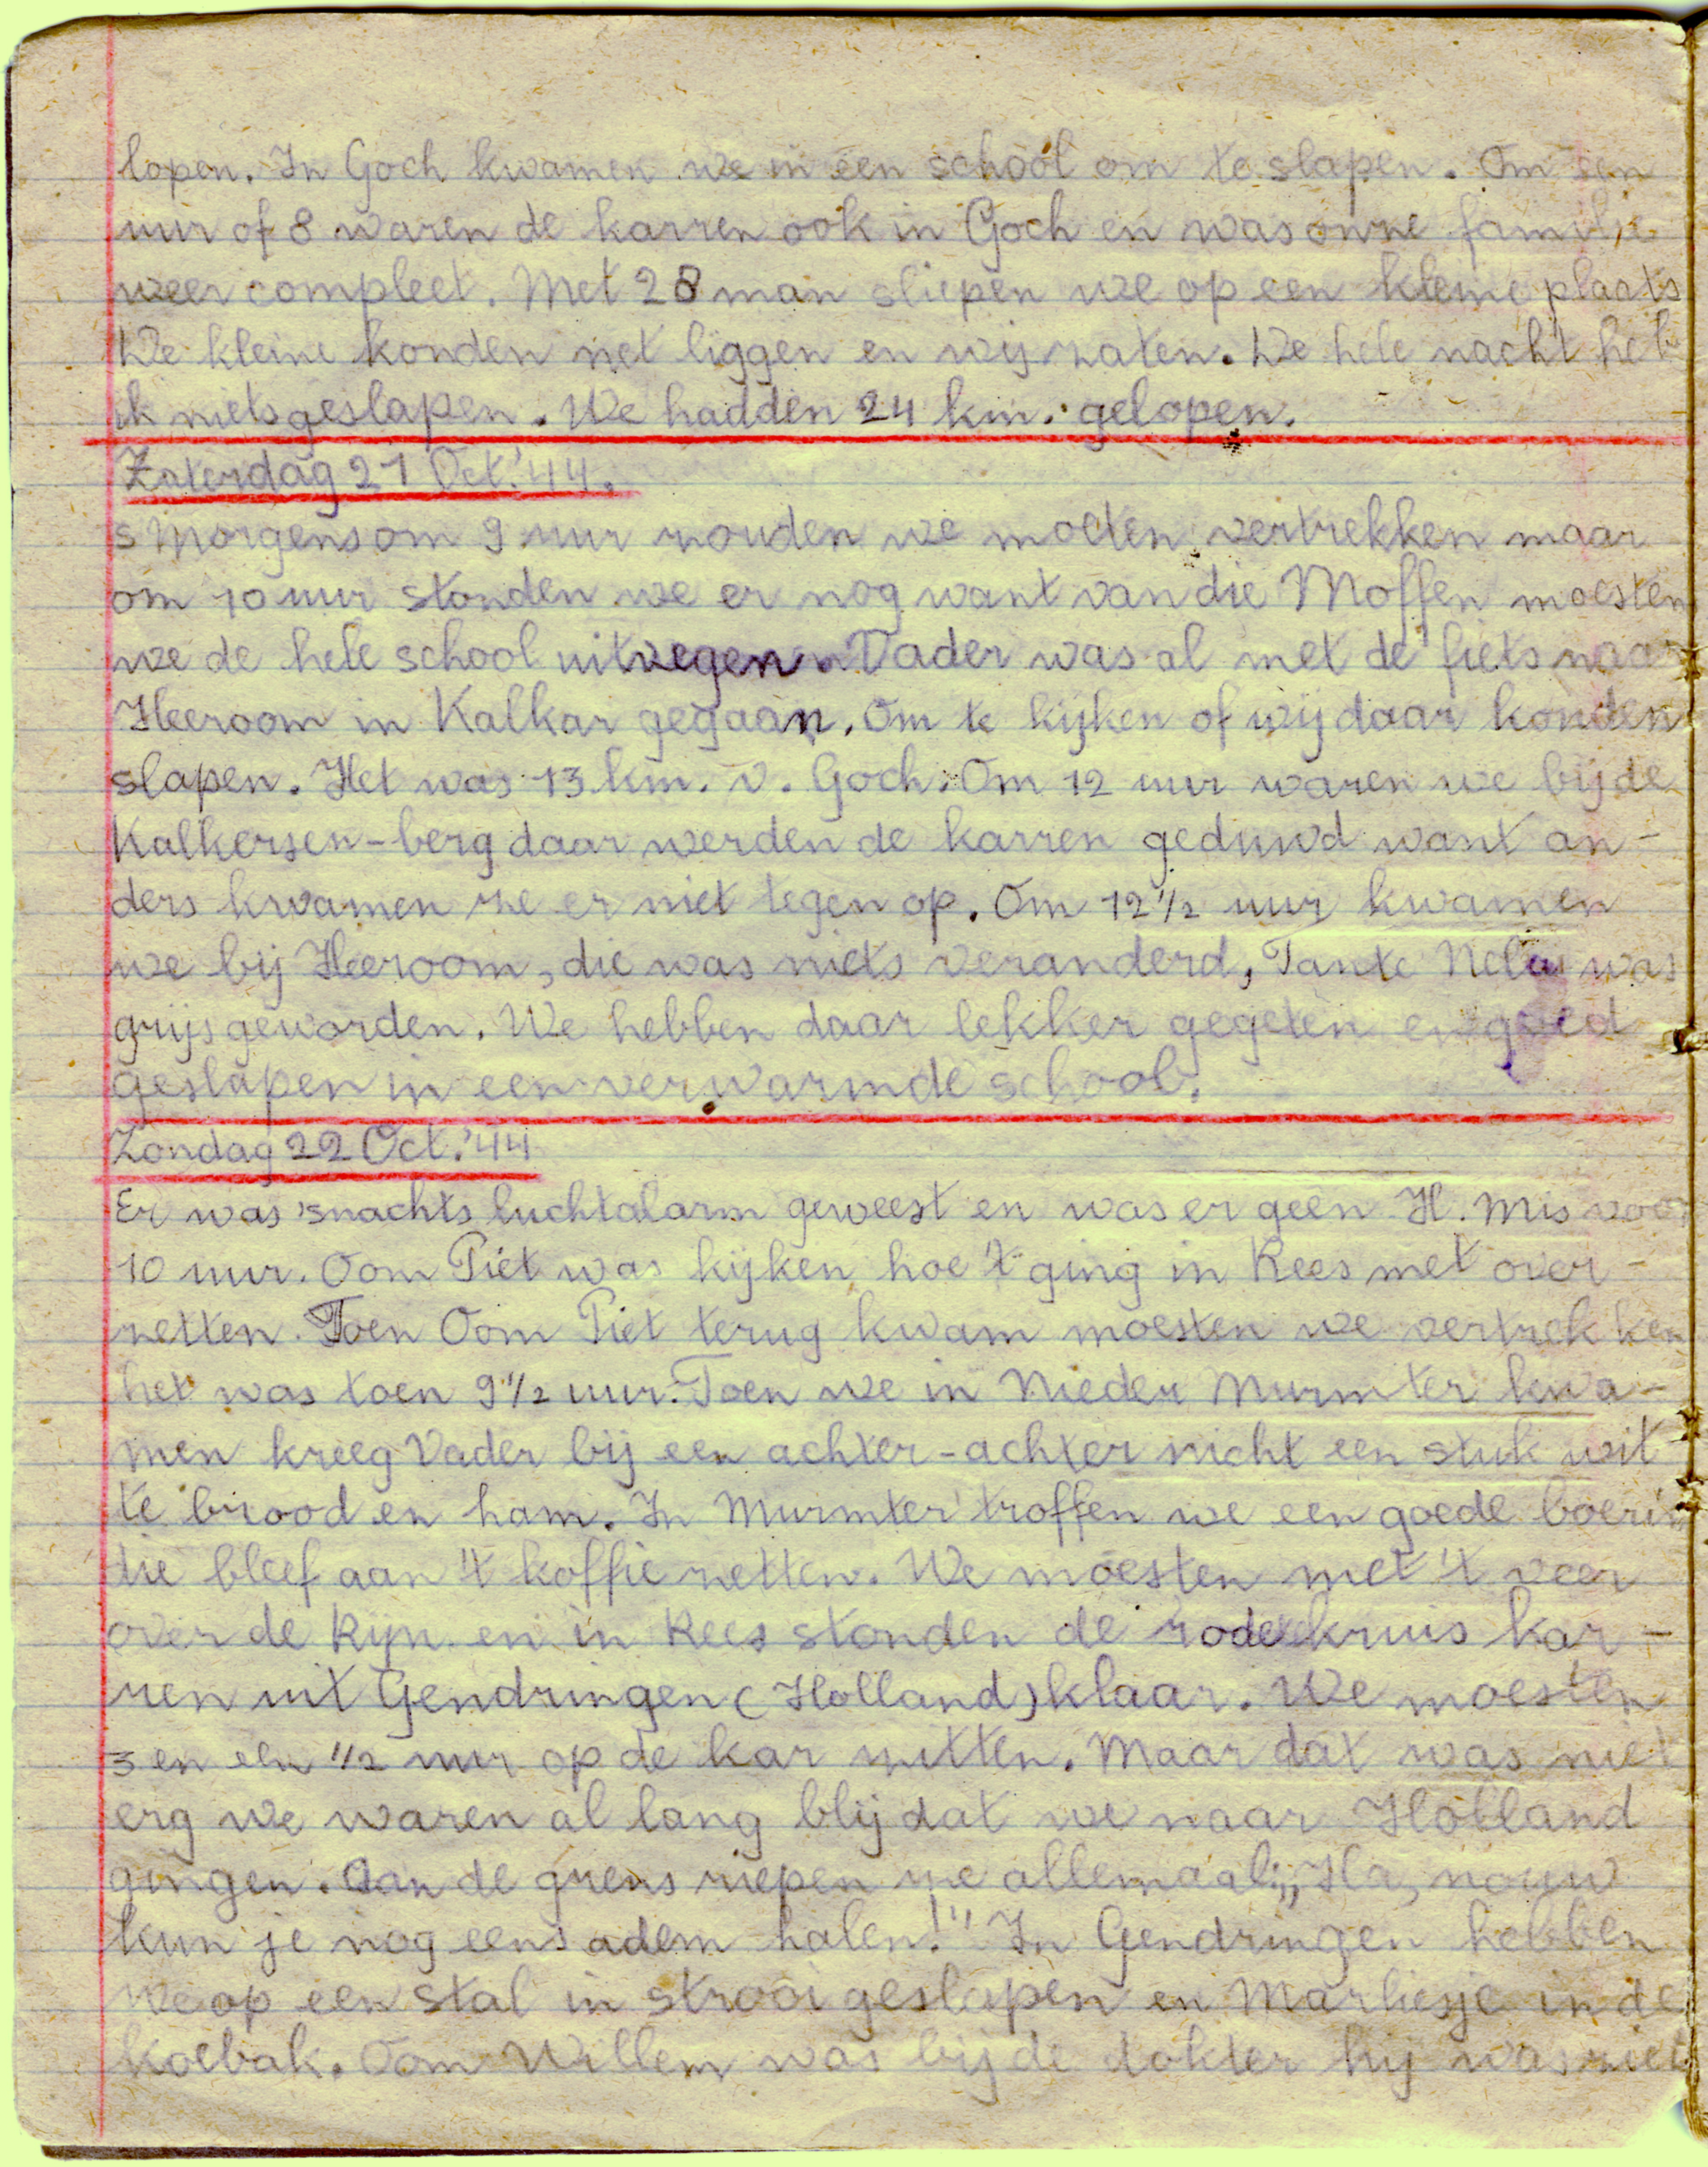 lopen. In Goch kwamen we in een school om te slapen. Om een
uur of 8 waren de karren ook in Goch en was onze familie
weer compleet. Met 28 man sliepen we op een kleine plaats
De kleine konden net liggen en wij zaten. De hele nacht heb
ik niets geslapen. We hadden 24 km. gelopen.
Zaterdag 21 Oct. '44.
s Morgens om 9 uur zouden we moeten vertrekken maar
om 10 uur stonden we er nog want van die Moffen moesten
we de hele school uitvegen. Vader was al met de fiets naar
Heeroom in Kalkar gegaan. Om te kijken of wij daar konden
slapen. Het was 13 km. v. Goch. Om 12 uur waren we bij de
Kalkersen-berg daar werden de karren geduwd want an-
ders kwamen ze er niet tegen op. Om 12 1/2 uur kwamen
we bij Heeroom, die was niets veranderd, Tante Nela was
grijs geworden. We hebben daar lekker gegeten en goed
geslapen in een verwarmde school.
Zondag 22 Oct. '44
Er was 'snachts luchtalarm geweest en was er geen H. Mis voor
10 uur. Oom Piet was kijken hoe 't ging in Rees met over-
zetten. Toen Oom Piet terug kwam moesten we vertrekken
het was toen 9 1/2 uur. Toen we in Nieder Murmter kwa-
men kreeg Vader bij een achter-achter nicht een stuk wit
te brood en ham. In Murmter troffen we een goede boerin
die bleef aan 't koffie zetten. We moesten met 't veer
over de Rijn en in Rees stonden de rode kruis kar-
ren uit Gendringen (Holland) klaar. We moesten
3 en een 1/2 uur op de kar zitten. Maar dat was niet
erg we waren al lang blij dat we naar Holland
gingen. Aan de grens riepen we allemaal: „Ha, nouw
kun je nog eens adem halen!" In Gendringen hebben
we op een stal in strooi geslapen en Marliesje in de
koebak. Oom Willem was bij de dokter hij was niet